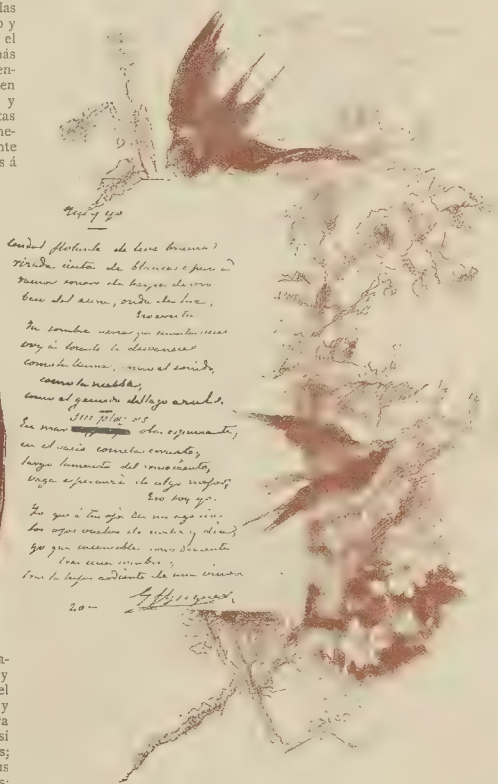 las
y
el
más
en-
en
y
tas
ne-
nte
s á
Tu y yo
Cendal flotante de leve bruma
rizada cinta de blanca espuma
rumor sonoro de harpa de oro
beso del aura, onda de luz,
Eso eres tu
Tu sombra aerea que cuantas veces
voy á tocarte te desvaneces
como la llama, como el sonido,
como la niebla,
como el gemido del lago azul.
sin playas
En mar onda
en el vacio cometa errante,
largo lamento del ronco viento,
vaga esperanza de algo mejor,
Eso soy yo.
Yo que á tus ojos en mi agonia
los ojos vuelvo de noche y dia,
yo que incansable corro demente
tras una sombra,
tras la hija ardiente de una vision
20—
a-
y
el
y
ra
si
s;
us
s;